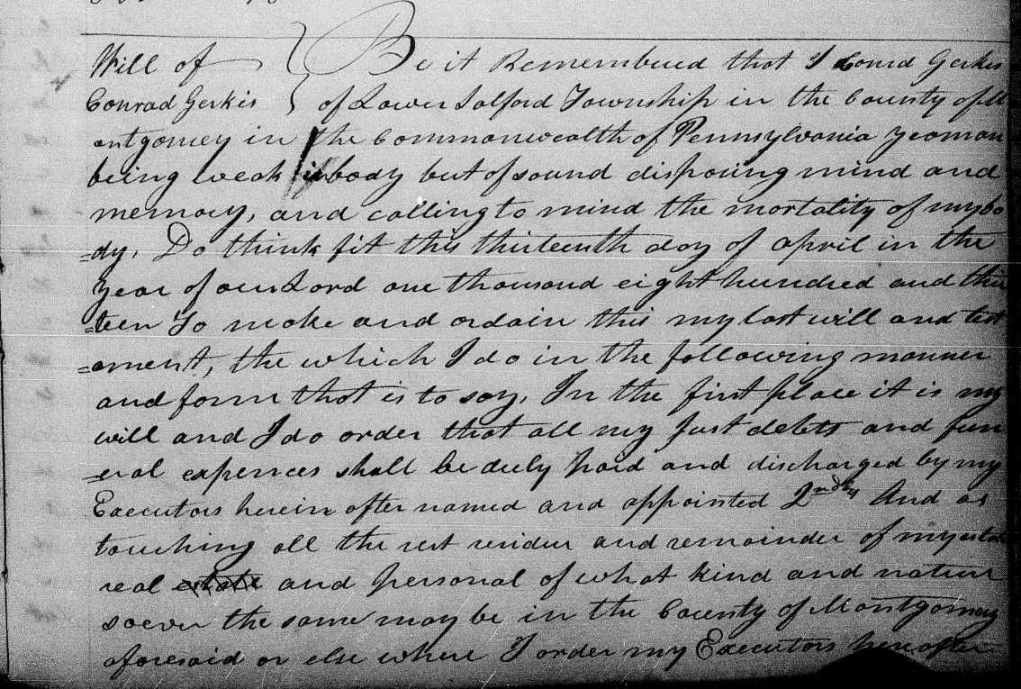 Will of Be it Remembered that I Conrd Gerkis
Conrad Gerkis of Lower Salford Township in the County of M
ontgomey in the Commonwealth of Pennsylvania yeoman
being weak in body but of sound disposing mind and
memory, and calling to mind the mortality of my bo
=dy. Do think fit this thirteenth day of april in the
year of our Lord one thousand eight hundred and thir
=teen To make and ordain this my last will and test
=ament, the which I do in the following manner
and form that is to say, In the first place it is my
will and I do order that all my Just debts and fun
=eral expences shall be duly paid and discharged by my
Executors herein after named and appointed 2ndly And as
touching all the rest residue and remainder of my estate
real estate and personal of what kind and nature
soever the same may be in the County of Montgomey
aforesaid or else where I order my Executors hereafter